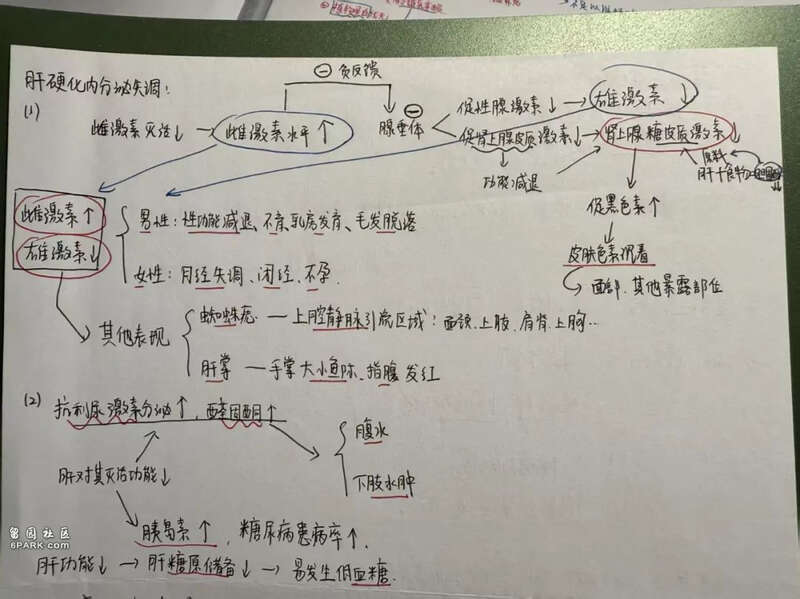 肝硬化内分泌失调：
⊖ 负反馈
(1)
雌激素灭活↓ → 雌激素水平↑
腺垂体 ⊖
促性腺激素↓ → 雄激素↓
促肾上腺皮质激素↓ → 肾上腺糖皮质激素↓
功能减退
原料
肝↓食物
促黑色素↑
皮肤色素沉着
面部、其他暴露部位
雌激素↑
雄激素↓
男性：性功能减退、不育、乳房发育、毛发脱落
女性：月经失调、闭经、不孕.
其他表现
蜘蛛痣 — 上腔静脉引流区域：面颈、上肢、肩背、上胸…
肝掌 — 手掌大小鱼际、指腹发红
(2) 抗利尿激素分泌↑，醛固酮↑
腹水
下肢水肿
肝对其灭活功能↓
胰岛素↑，糖尿病患病率↑.
肝功能↓ → 肝糖原储备↓ → 易发生低血糖.
留园社区
6PARK.COM